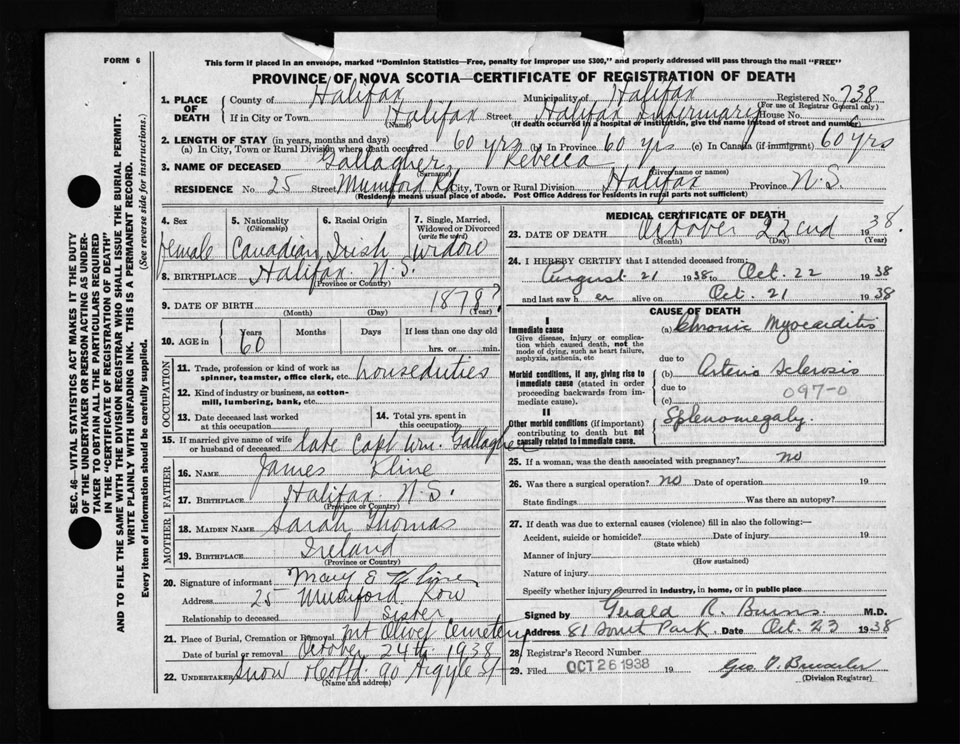 FORM 6
This form if placed in an envelope, marked "Dominion Statistics—Free, penalty for improper use $300," and properly addressed will pass through the mail "FREE"
PROVINCE OF NOVA SCOTIA—CERTIFICATE OF REGISTRATION OF DEATH
1. PLACE OF DEATH
County of Halifax Municipality of Halifax Registered No. 738
(For use of Registrar General only)
If in City or Town Halifax Street Halifax Infirmary House No.
(Name) (If death occurred in a hospital or institution, give the name instead of street and number)
2. LENGTH OF STAY (in years, months and days)
(a) In City, Town or Rural Division where death occurred 60 yrs (b) In Province 60 yrs (c) In Canada (if immigrant) 60 yrs
3. NAME OF DECEASED Gallagher Rebecca
(Surname) (Given name or names)
RESIDENCE No. 25 Street Mumford Rd City, Town or Rural Division Halifax Province N.S.
(Residence means usual place of abode. Post Office Address for residents in rural parts not sufficient)
4. Sex female
5. Nationality (Citizenship) Canadian
6. Racial Origin Irish
7. Single, Married, Widowed or Divorced (write the word) widow
8. BIRTHPLACE Halifax N.S.
(Province or Country)
9. DATE OF BIRTH 1878?
(Month) (Day) (Year)
10. AGE in Years 60 Months Days If less than one day old
hrs. or min.
OCCUPATION
11. Trade, profession or kind of work as spinner, teamster, office clerk, etc. houseduties
12. Kind of industry or business, as cotten-mill, lumbering, bank, etc.
13. Date deceased last worked at this occupation
14. Total yrs. spent in this occupation
15. If married give name of wife or husband of deceased late Capt Wm. Gallagher
FATHER
16. NAME James Kline
17. BIRTHPLACE Halifax N.S.
(Province or Country)
MOTHER
18. MAIDEN NAME Sarah Thomas
19. BIRTHPLACE Ireland
(Province or Country)
20. Signature of informant Mary E Kline
Address 25 Mumford Row
Relationship to deceased Sister
21. Place of Burial, Cremation or Removal Mt Olivet Cemetery
Date of burial or removal October 24th 1938
22. UNDERTAKER Snow & Co Ltd 90 Argyle St
(Name and address)
MEDICAL CERTIFICATE OF DEATH
23. DATE OF DEATH October 22nd 1938.
(Month) (Day) (Year)
24. I HEREBY CERTIFY that I attended deceased from:
August 21 1938 to Oct. 22 1938
and last saw her alive on Oct. 21 1938
CAUSE OF DEATH
I
Immediate cause
Give disease, injury or complication which caused death, not the mode of dying, such as heart failure, asphyxia, asthenia, etc
(a) Chronic Myocarditis
due to
Morbid conditions, if any, giving rise to immediate cause (stated in order proceeding backwards from immediate cause).
(b) Arterio Sclerosis
due to
(c) 097-0
II
Other morbid conditions (if important) contributing to death but not causally related to immediate cause.
Splenomegaly.
25. If a woman, was the death associated with pregnancy? no
26. Was there a surgical operation? no Date of operation 19
State findings Was there an autopsy?
27. If death was due to external causes (violence) fill in also the following:—
Accident, suicide or homicide? Date of injury 19
(State which)
Manner of injury
(How sustained)
Nature of injury
Specify whether injury occurred in industry, in home, or in public place
Signed by Gerald R. Burns M.D.
Address 81 South Park. Date Oct. 23 1938
28. Registrar's Record Number
29. Filed OCT 26 1938 19
(Division Registrar)
SEC. 46—VITAL STATISTICS ACT MAKES IT THE DUTY
OF THE UNDERTAKER OR PERSON ACTING AS UNDER-
TAKER TO OBTAIN ALL THE PARTICULARS REQUIRED
IN THE "CERTIFICATE OF REGISTRATION OF DEATH"
AND TO FILE THE SAME WITH THE DIVISION REGISTRAR WHO SHALL ISSUE THE BURIAL PERMIT.
WRITE PLAINLY WITH UNFADING INK. THIS IS A PERMANENT RECORD.
Every item of information should be carefully supplied. (See reverse side for instructions.)